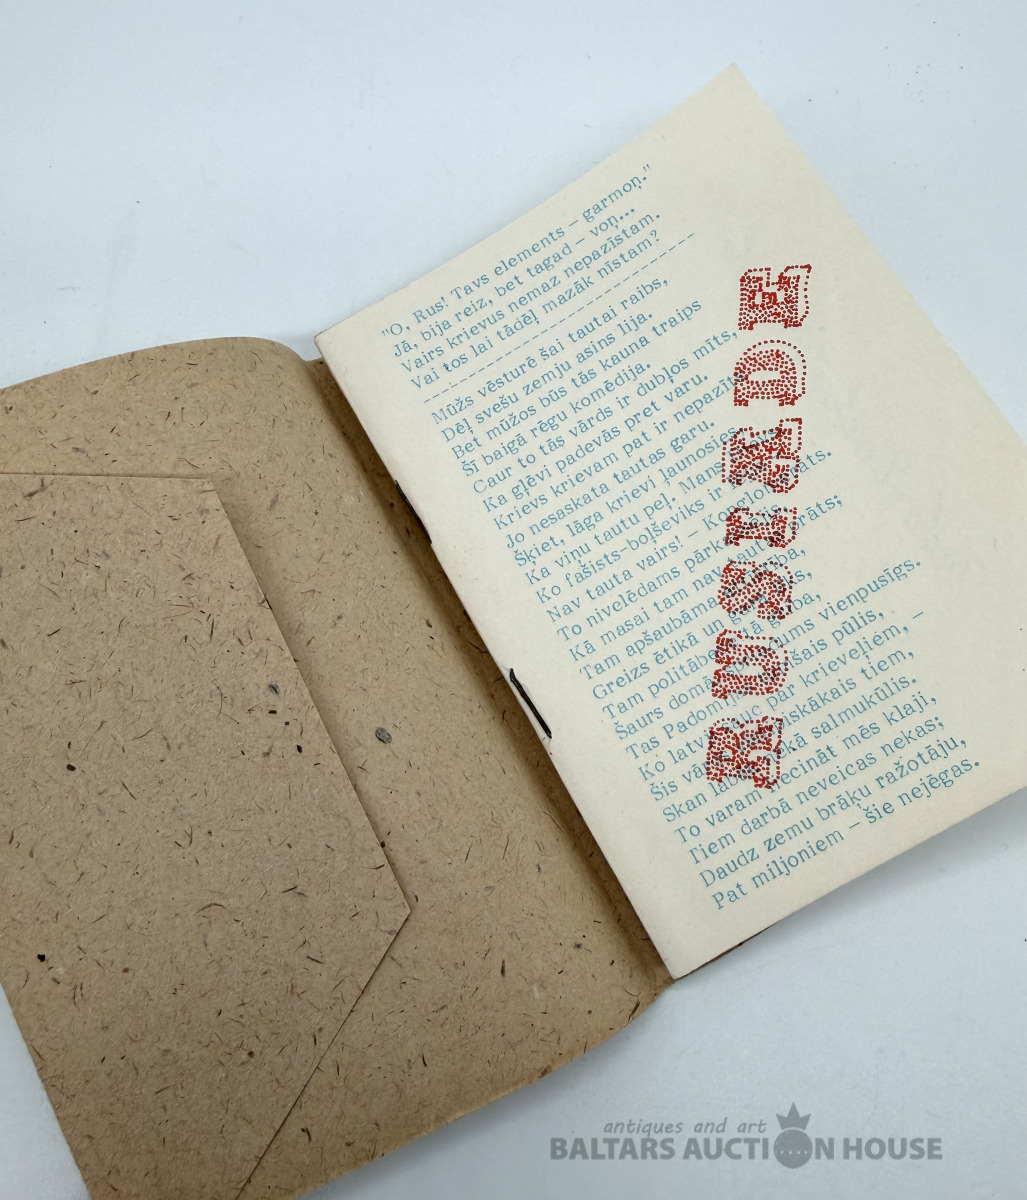 "O, Rus! Tavs elements – garmoņ."
Jā, bija reiz, bet tagad – voņ...
Vairs krievus nemaz nepazīstam.
Vai tos lai tādēļ mazāk nīstam?
Mūžs vēsturē šai tautai raibs,
Dēļ svešu zemju asins lija.
Bet mūžos būs tās kauna traips
Šī baigā rēgu komēdija.
Caur to tās vārds ir dubļos mīts,
Ka gļēvi padevās pret varu.
Krievs krievam pat ir nepazīts,
Jo nesaskata tautas garu.
Šķiet, lāga krievi ļaunosies,
Ka viņu tautu peļ. Mans
Ko fašists-boļševiks ir
Nav tauta vairs! –
To nivelēdams pārk
Kā masai tam nav taut prāts;
Tam apšaubāma
Greizs ētikā un
Tam politāb
Šaurs domā vienpusīgs.
Tas Padomij šais pūlis,
Ko latv auc par krieveļiem, –
Šis vār piskākais tiem,
Skan lab kā salmukūlis.
To varam liecināt mēs klaji,
Tiem darbā neveicas nekas;
Daudz zemu brāķu ražotāju,
Pat miljoniem – šie nejēgas.
RUSIĀDE
antiques and art
BALTARS AUCTION HOUSE